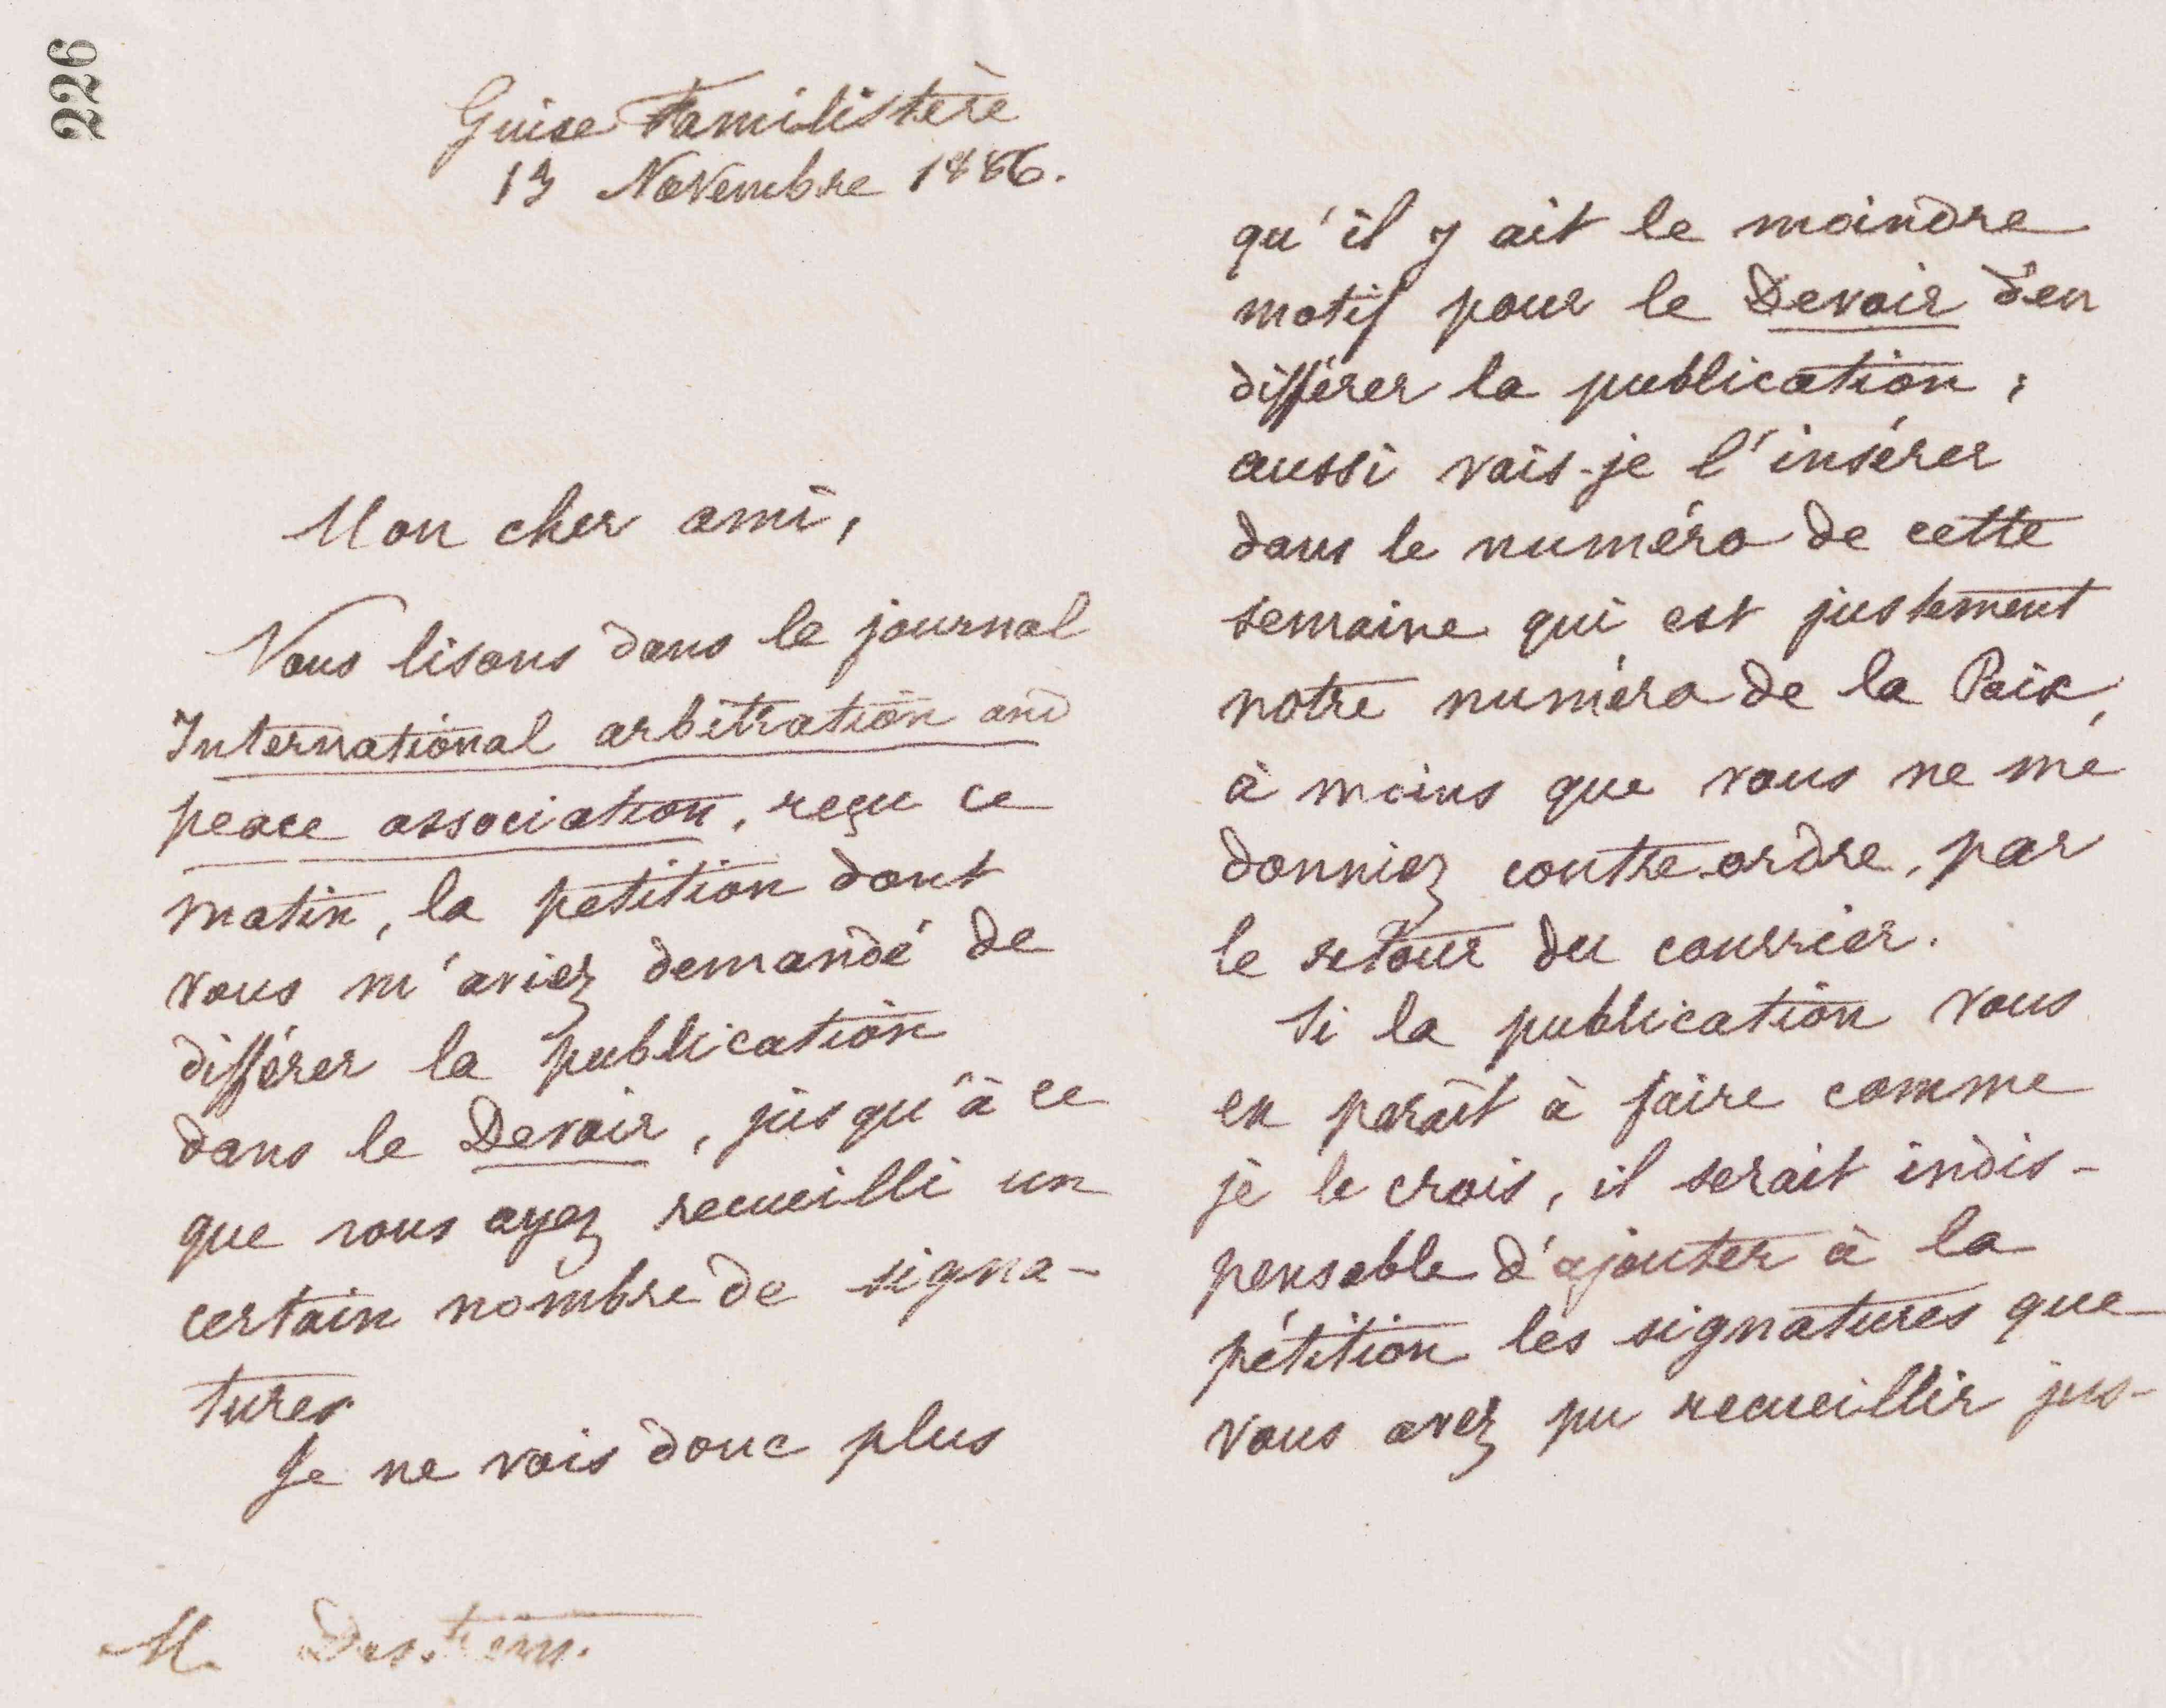 226
Guise Familistère
13 Novembre 1886.
Mon cher ami,
Nous lisons dans le journal
International arbitration and
peace association, reçu ce
matin, la pétition dont
vous m'aviez demandé de
différer la publication
dans le Devoir, jusqu'à ce
que vous ayez recueilli un
certain nombre de signa-
tures
Je ne vois donc plus
M.
qu'il y ait le moindre
motif pour le Devoir d'en
différer la publication ;
aussi vais-je l'insérer
dans le numéro de cette
semaine qui est justement
notre numéro de la Paix,
à moins que vous ne me
donniez contre-ordre, par
le retour du courrier.
Si la publication vous
en paraît à faire comme
je le crois, il serait indis-
pensable d'ajouter à la
pétition les signatures que
vous avez pu recueillir jus-